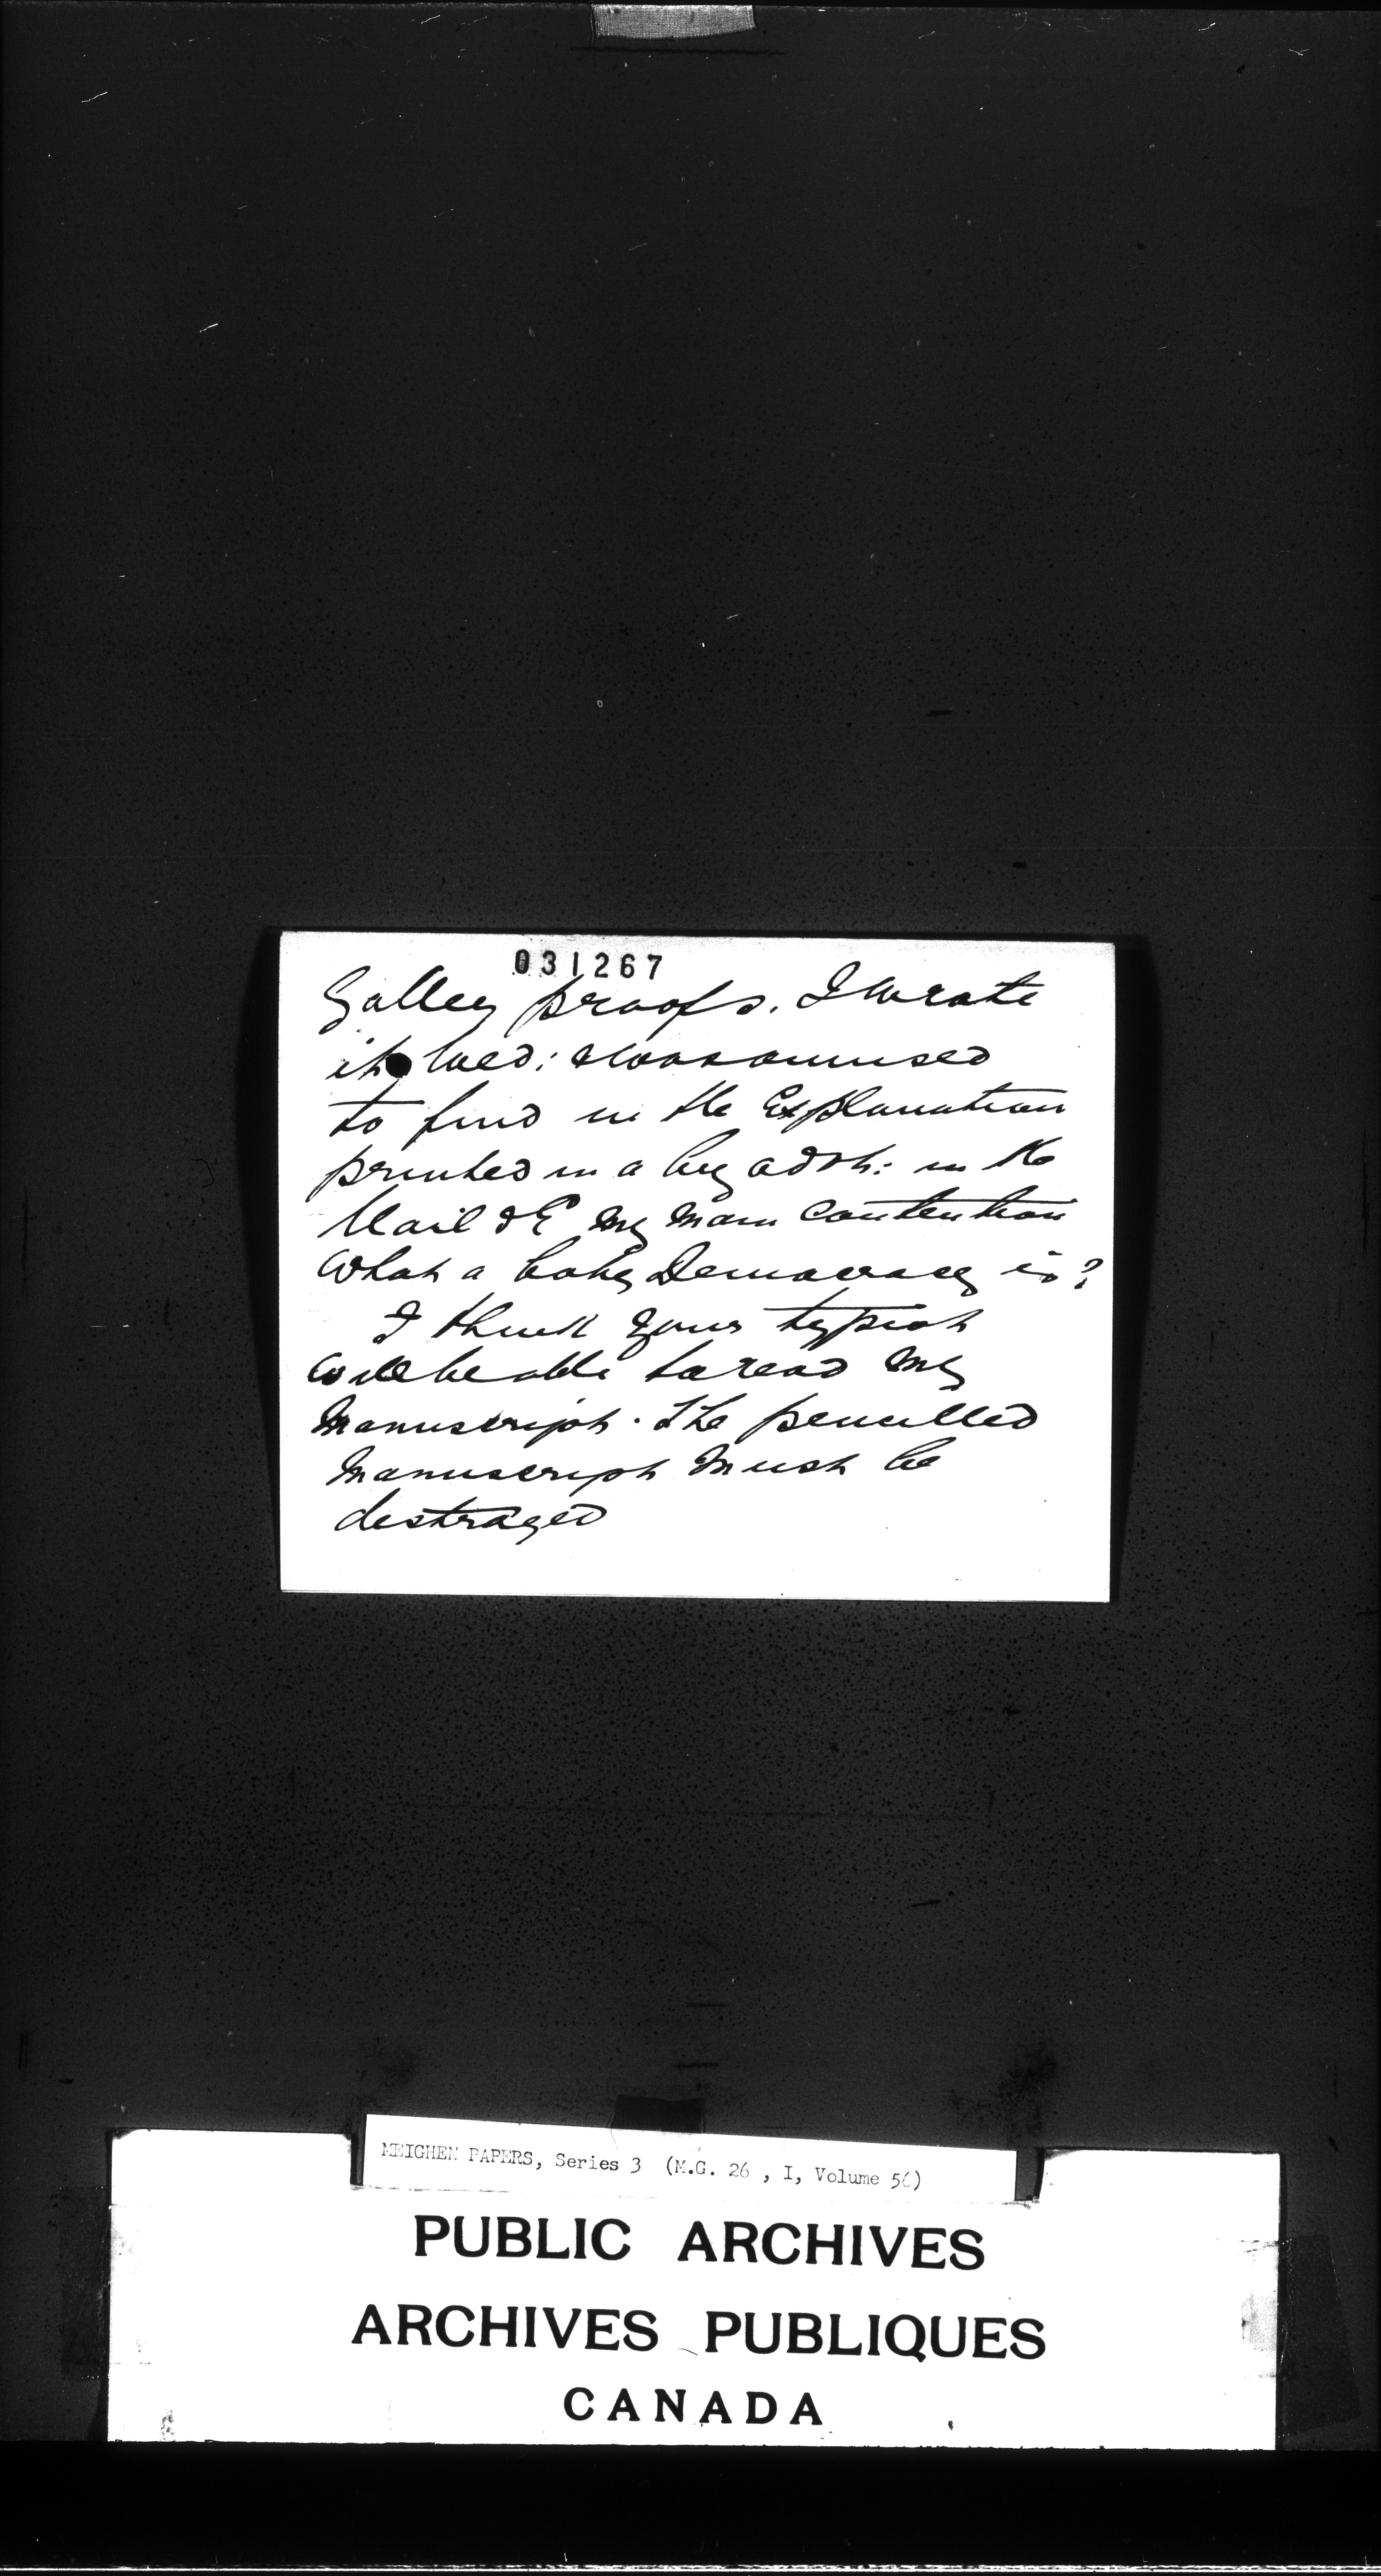 031267
Galley proofs. I wrote
it Wed: & was amused
to find in the Explanation
printed in a big advt: in the
Mail & E my main contention
What a baby Democracy is?
I think your typist
will be able to read my
manuscript. The pencilled
manuscript must be
destroyed
MEIGHEN PAPERS, Series 3 (M.G. 26 , I, Volume 56)
PUBLIC ARCHIVES
ARCHIVES PUBLIQUES
CANADA